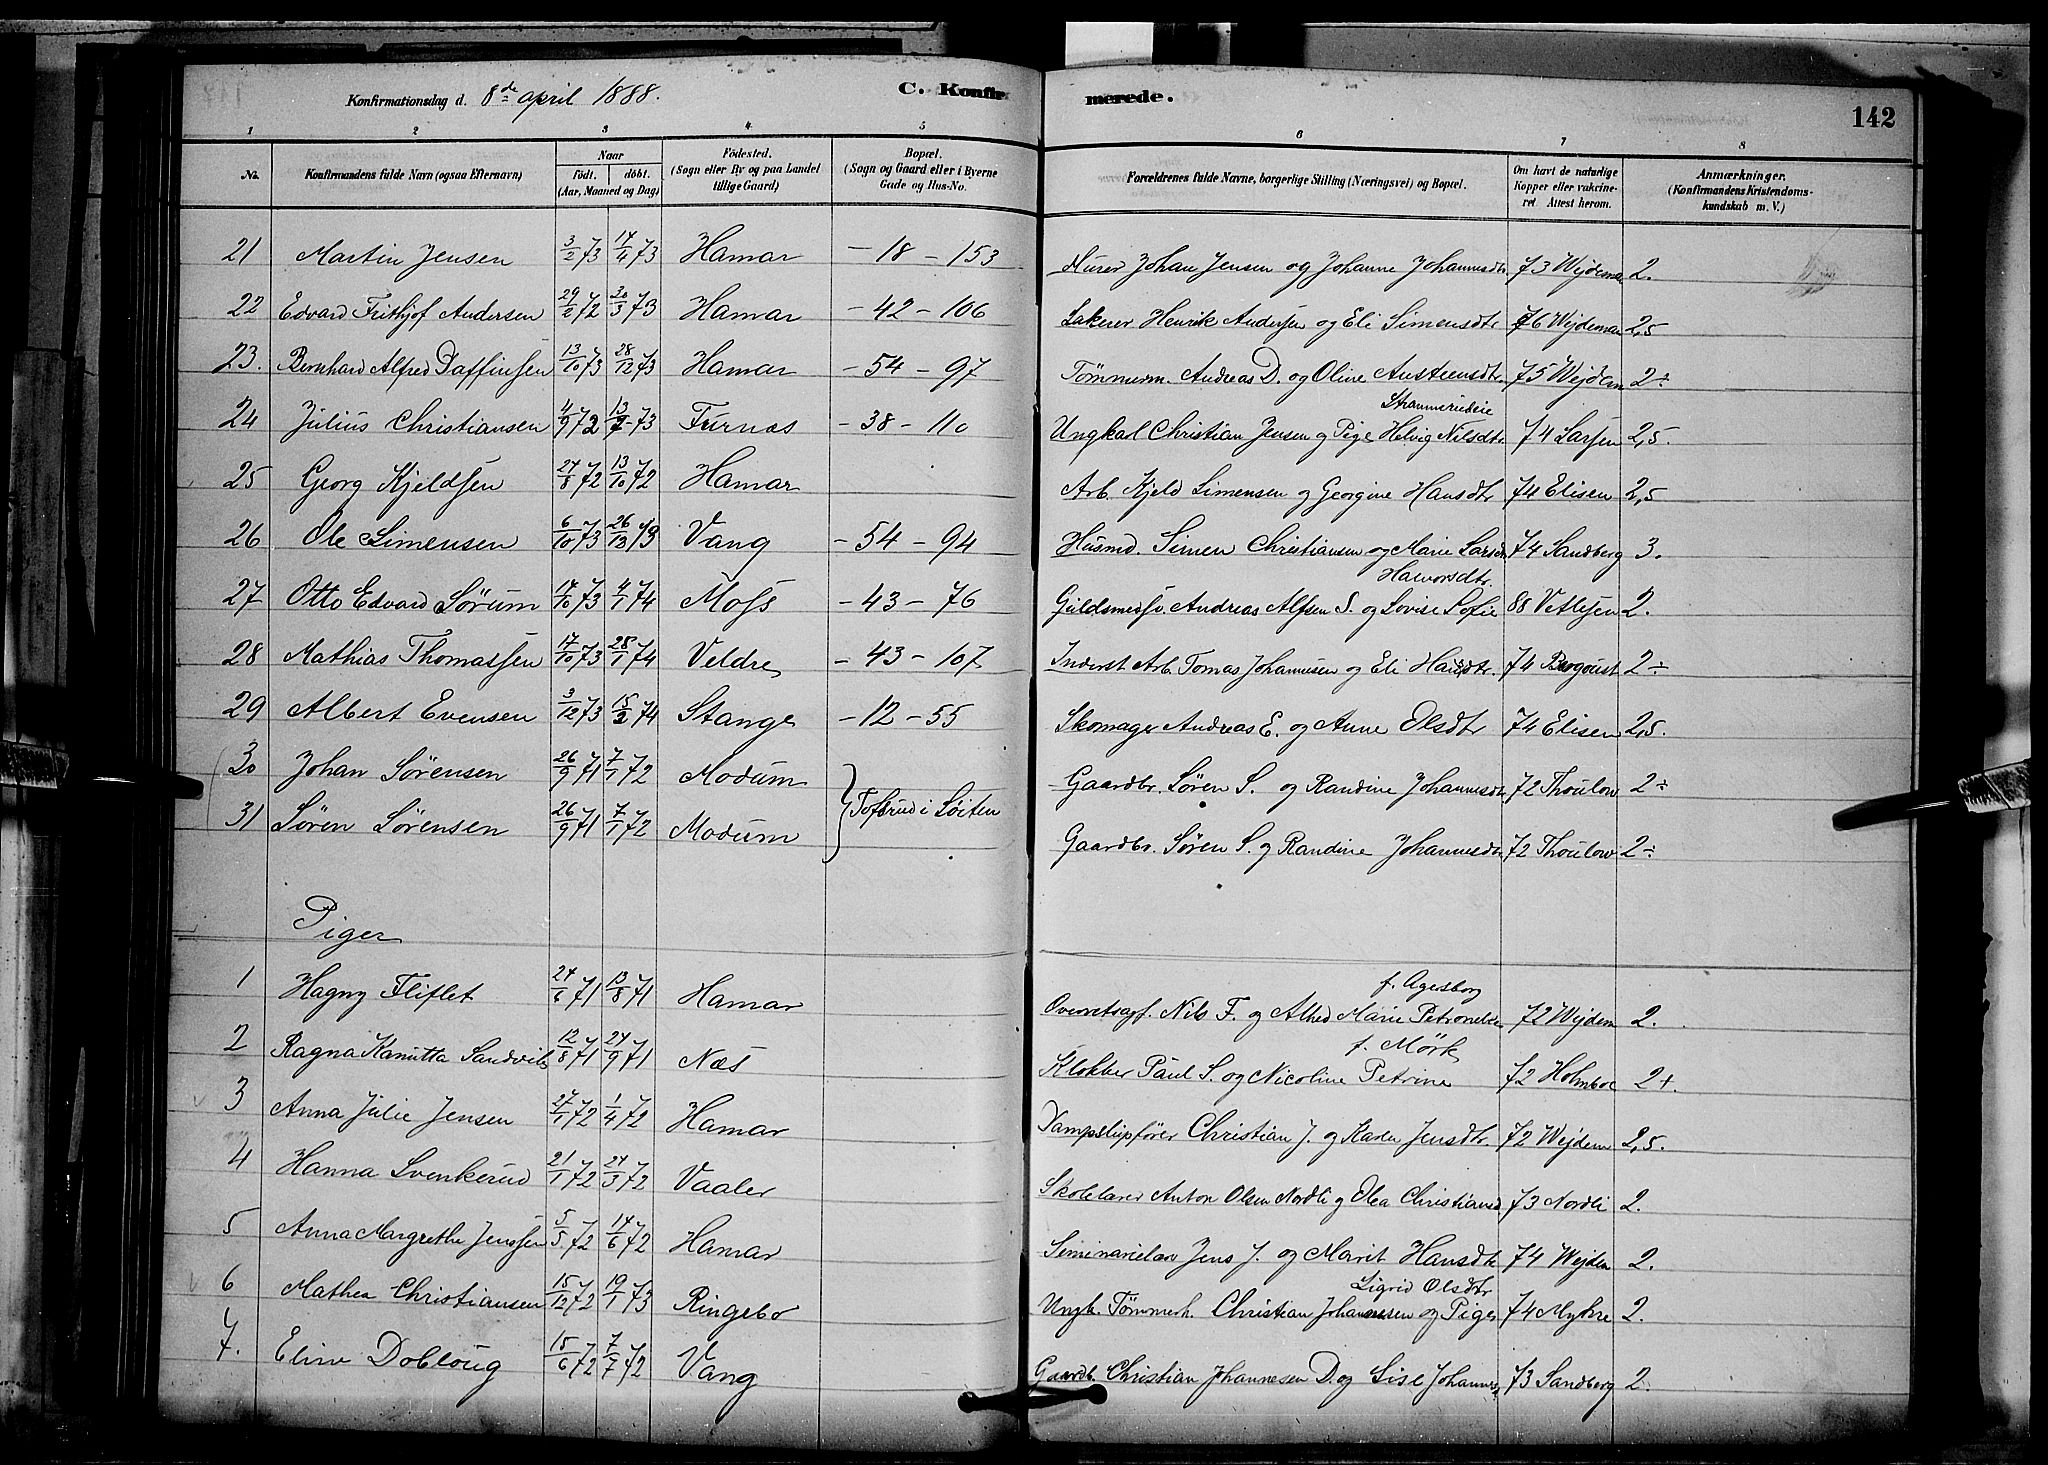 Konfirmationsdag d. 8de april 1888. C. Konfirmerede. 142
1 2 3 4 5 6 7 8
No. Konfirmandens fulde Navn (ogsaa Efternavn) Naar født. døbt. (Aar, Maaned og Dag) Fødested. (Sogn eller By og paa Landet tillige Gaard) Bopæl. (Sogn og Gaard eller i Byerne Gade og Hus-No. Forældrenes fulde Navne, borgerlige Stilling (Næringsvei) og Bopæl. Om havt de naturlige Kopper eller vakcineret. Attest herom. Anmærkninger. (Konfirmandens Kristendomskundskab m. V.)
21 Martin Jensen 3/2 73 14/4 73 Hamar - 18 - 153 Murer Johan Jensen og Johanne Johannesdtr 73 Wejdeman 2.
22 Edvard Frithjof Andersen 29/2 72 30/3 73 Hamar - 42 - 106 Henrik Andersen og Eli Simensdtr 76 Wejdeman 2,5
23. Bernhard Alfred Daffinsen 13/10 73 28/12 73 Hamar - 54 - 97 Tømmerm. Andreas D. og Oline Austensdtr. 75 Wejdem 2÷
24 Julius Christiansen 4/9 72 13/7 73 Furnæs - 38 - 110 Ungkarl Christian Jensen og Pige Helvig Nilsdtr 74 Larsen 2,5.
25 Georg Kjeldsen 24/8 72 13/10 72 Hamar Arb. Kjeld Simensen og Georgine Hansdtr 74 Elisen 2,5
26 Ole Simensen 6/10 73 26/12 73 Vang - 54 - 94 Husmd. Simen Christiansen og Marie Larsdtr 74 Sandberg 3.
Halvorsdtr.
27 Otto Edvard Sørum 14/10 73 4/1 74 Moss - 43 - 76 Guldsmedsv. Andreas Alfsen S. og Lovise Sofie 88 Vetlesen 2.
28 Mathias Thomassen 17/10 73 28/1 74 Veldre - 43 - 107 Inderst Arb. Tomas Johannesen og Eli Hansdtr. 74 Bergquist 2÷
29 Albert Evensen 3/12 73 15/2 74 Stange - 12 - 55 Skomager Andreas E. og Anne Olsdtr 74 Elisen 2,5.
30 Johan Sørensen 26/9 71 7/1 72 Modum Gaardbr. Søren S. og Randine Johannesdtr 72 Thoulow 2÷
Tofsrud i Løiten
31 Søren Sørensen 26/9 71 7/1 72 Modum Gaardbr. Søren S. og Randine Johannesdtr 72 Thoulow 2÷
Piger
f. Agersborg
1 Hagny Fliflet 24/6 71 13/8 71 Hamar Overretssagf. Nils F. og Alhed Marie Petronelle 72 Wejdem 2.
f. Mörk
2 Ragna Kanutta Sandvik 12/8 71 24/9 71 Næs Klokker Paul S. og Nicoline Petrine 72 Holmboe 2+.
3 Anna Julie Jensen 27/1 72 1/4 72 Hamar Dampskipfører Christian J. og Karen Jensdtr. 72 Wejdem 2,5.
4 Hanna Svenkerud 21/1 72 24/3 72 Vaaler Skolelærer Anton Olsen Nordli og Olea Christiansd 73 Nordli 2.
5 Anna Margrethe Jenssen 5/5 72 14/6 72 Hamar Seminarielær Jens J. og Marit Hansdtr 74 Wejdem 2.
Sigrid Olsdtr
6 Mathea Christiansen 15/12 72 19/1 73 Ringebo Ungk. Tømmerh. Christian Johannesen og Pige 74 Myhre 2.
7. Eline Dobloug 15/6 72 7/7 72 Vang Gaardb. Christian Johannesen D. og Lise Johannes 73 Sandberg 2.